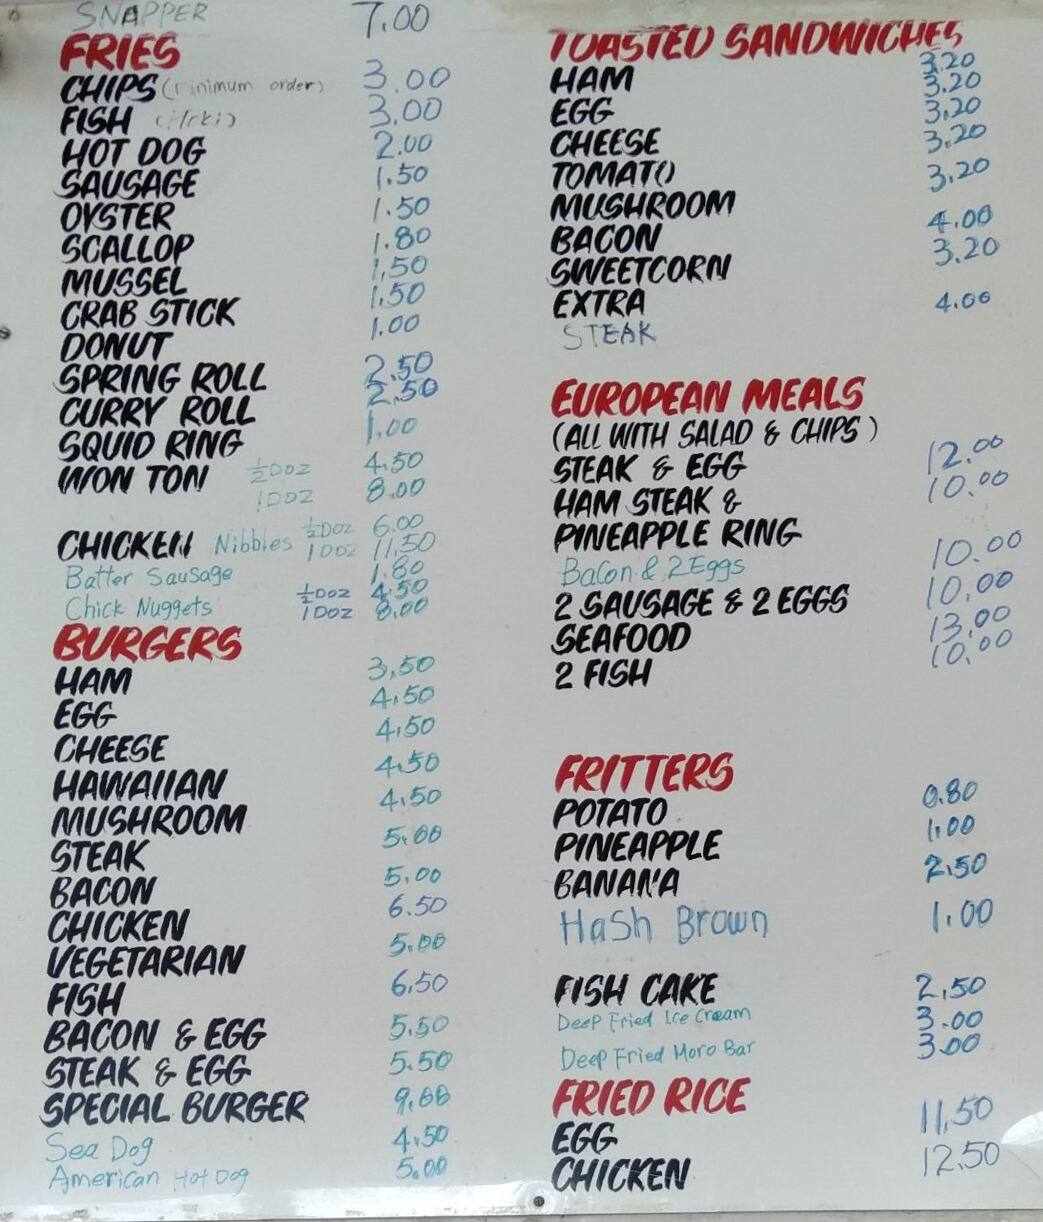 SNAPPER 7.00
FRIES
CHIPS (minimum order) 3.00
FISH 3.00
HOT DOG 2.00
SAUSAGE 1.50
OYSTER 1.50
SCALLOP 1.80
MUSSEL 1.50
CRAB STICK 1.50
DONUT 1.00
SPRING ROLL 2.50
CURRY ROLL 2.50
SQUID RING 1.00
WON TON ½DOZ 4.50
1DOZ 8.00
½DOZ 6.00
CHICKEN Nibbles 1DOZ 11.50
Batter Sausage 1.80
Chick Nuggets ½DOZ 4.50
1DOZ 8.00
BURGERS
HAM 3.50
EGG 4.50
CHEESE 4.50
HAWAIIAN 4.50
MUSHROOM 4.50
STEAK 5.00
BACON 5.00
CHICKEN 6.50
VEGETARIAN 5.00
FISH 6.50
BACON & EGG 5.50
STEAK & EGG 5.50
SPECIAL BURGER 9.00
Sea Dog 4.50
American Hot Dog 5.00
TOASTED SANDWICHES
3.20
HAM 3.20
EGG 3.20
CHEESE 3.20
TOMATO 3.20
MUSHROOM
BACON 4.00
SWEETCORN 3.20
EXTRA 4.00
STEAK
EUROPEAN MEALS
(ALL WITH SALAD & CHIPS)
STEAK & EGG 12.00
HAM STEAK & 10.00
PINEAPPLE RING
Bacon & 2Eggs 10.00
2 SAUSAGE & 2 EGGS 10.00
SEAFOOD 13.00
2 FISH 10.00
FRITTERS
POTATO 0.80
PINEAPPLE 1.00
BANANA 2.50
Hash Brown 1.00
FISH CAKE 2.50
Deep Fried Ice Cream 3.00
Deep Fried Moro Bar 3.00
FRIED RICE
EGG 11.50
CHICKEN 12.50